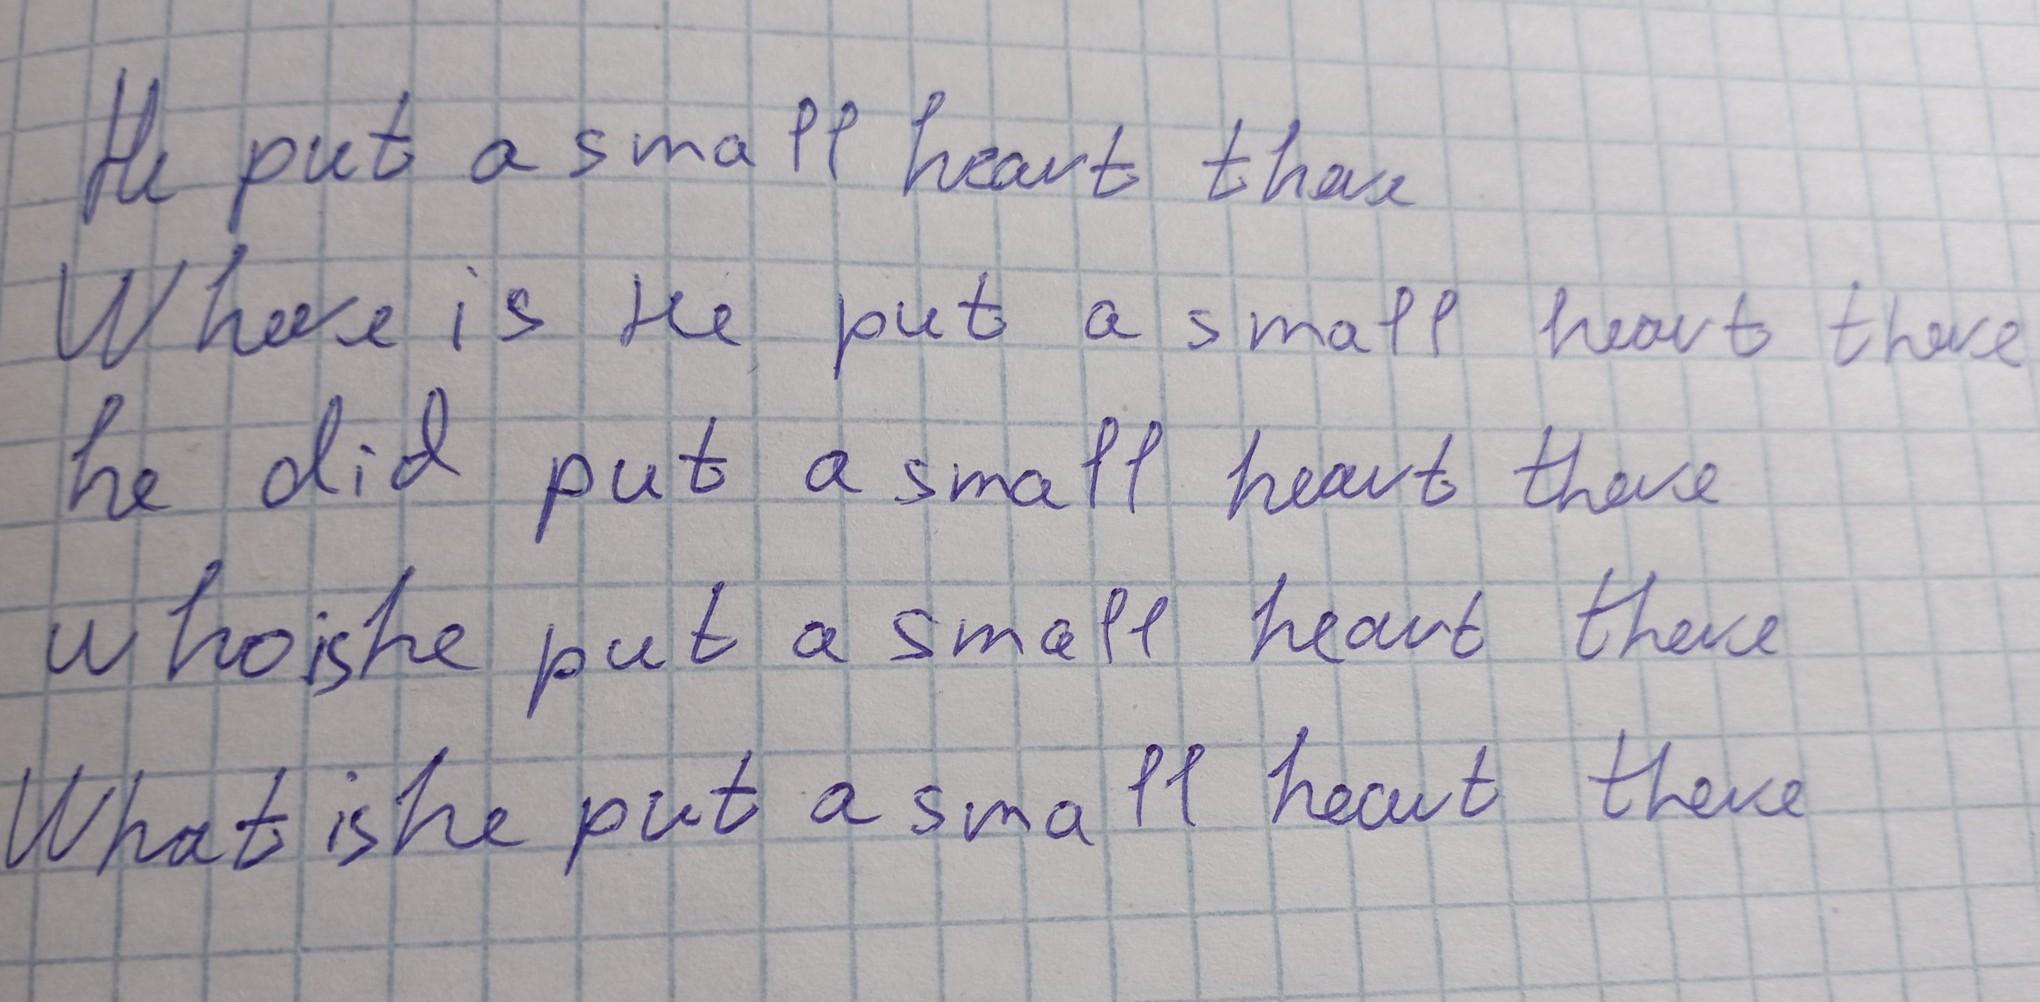 He put a small heart there
Where is He put a small heart there
he did put a small heart there
who is he put a small heart there
What is he put a small heart there